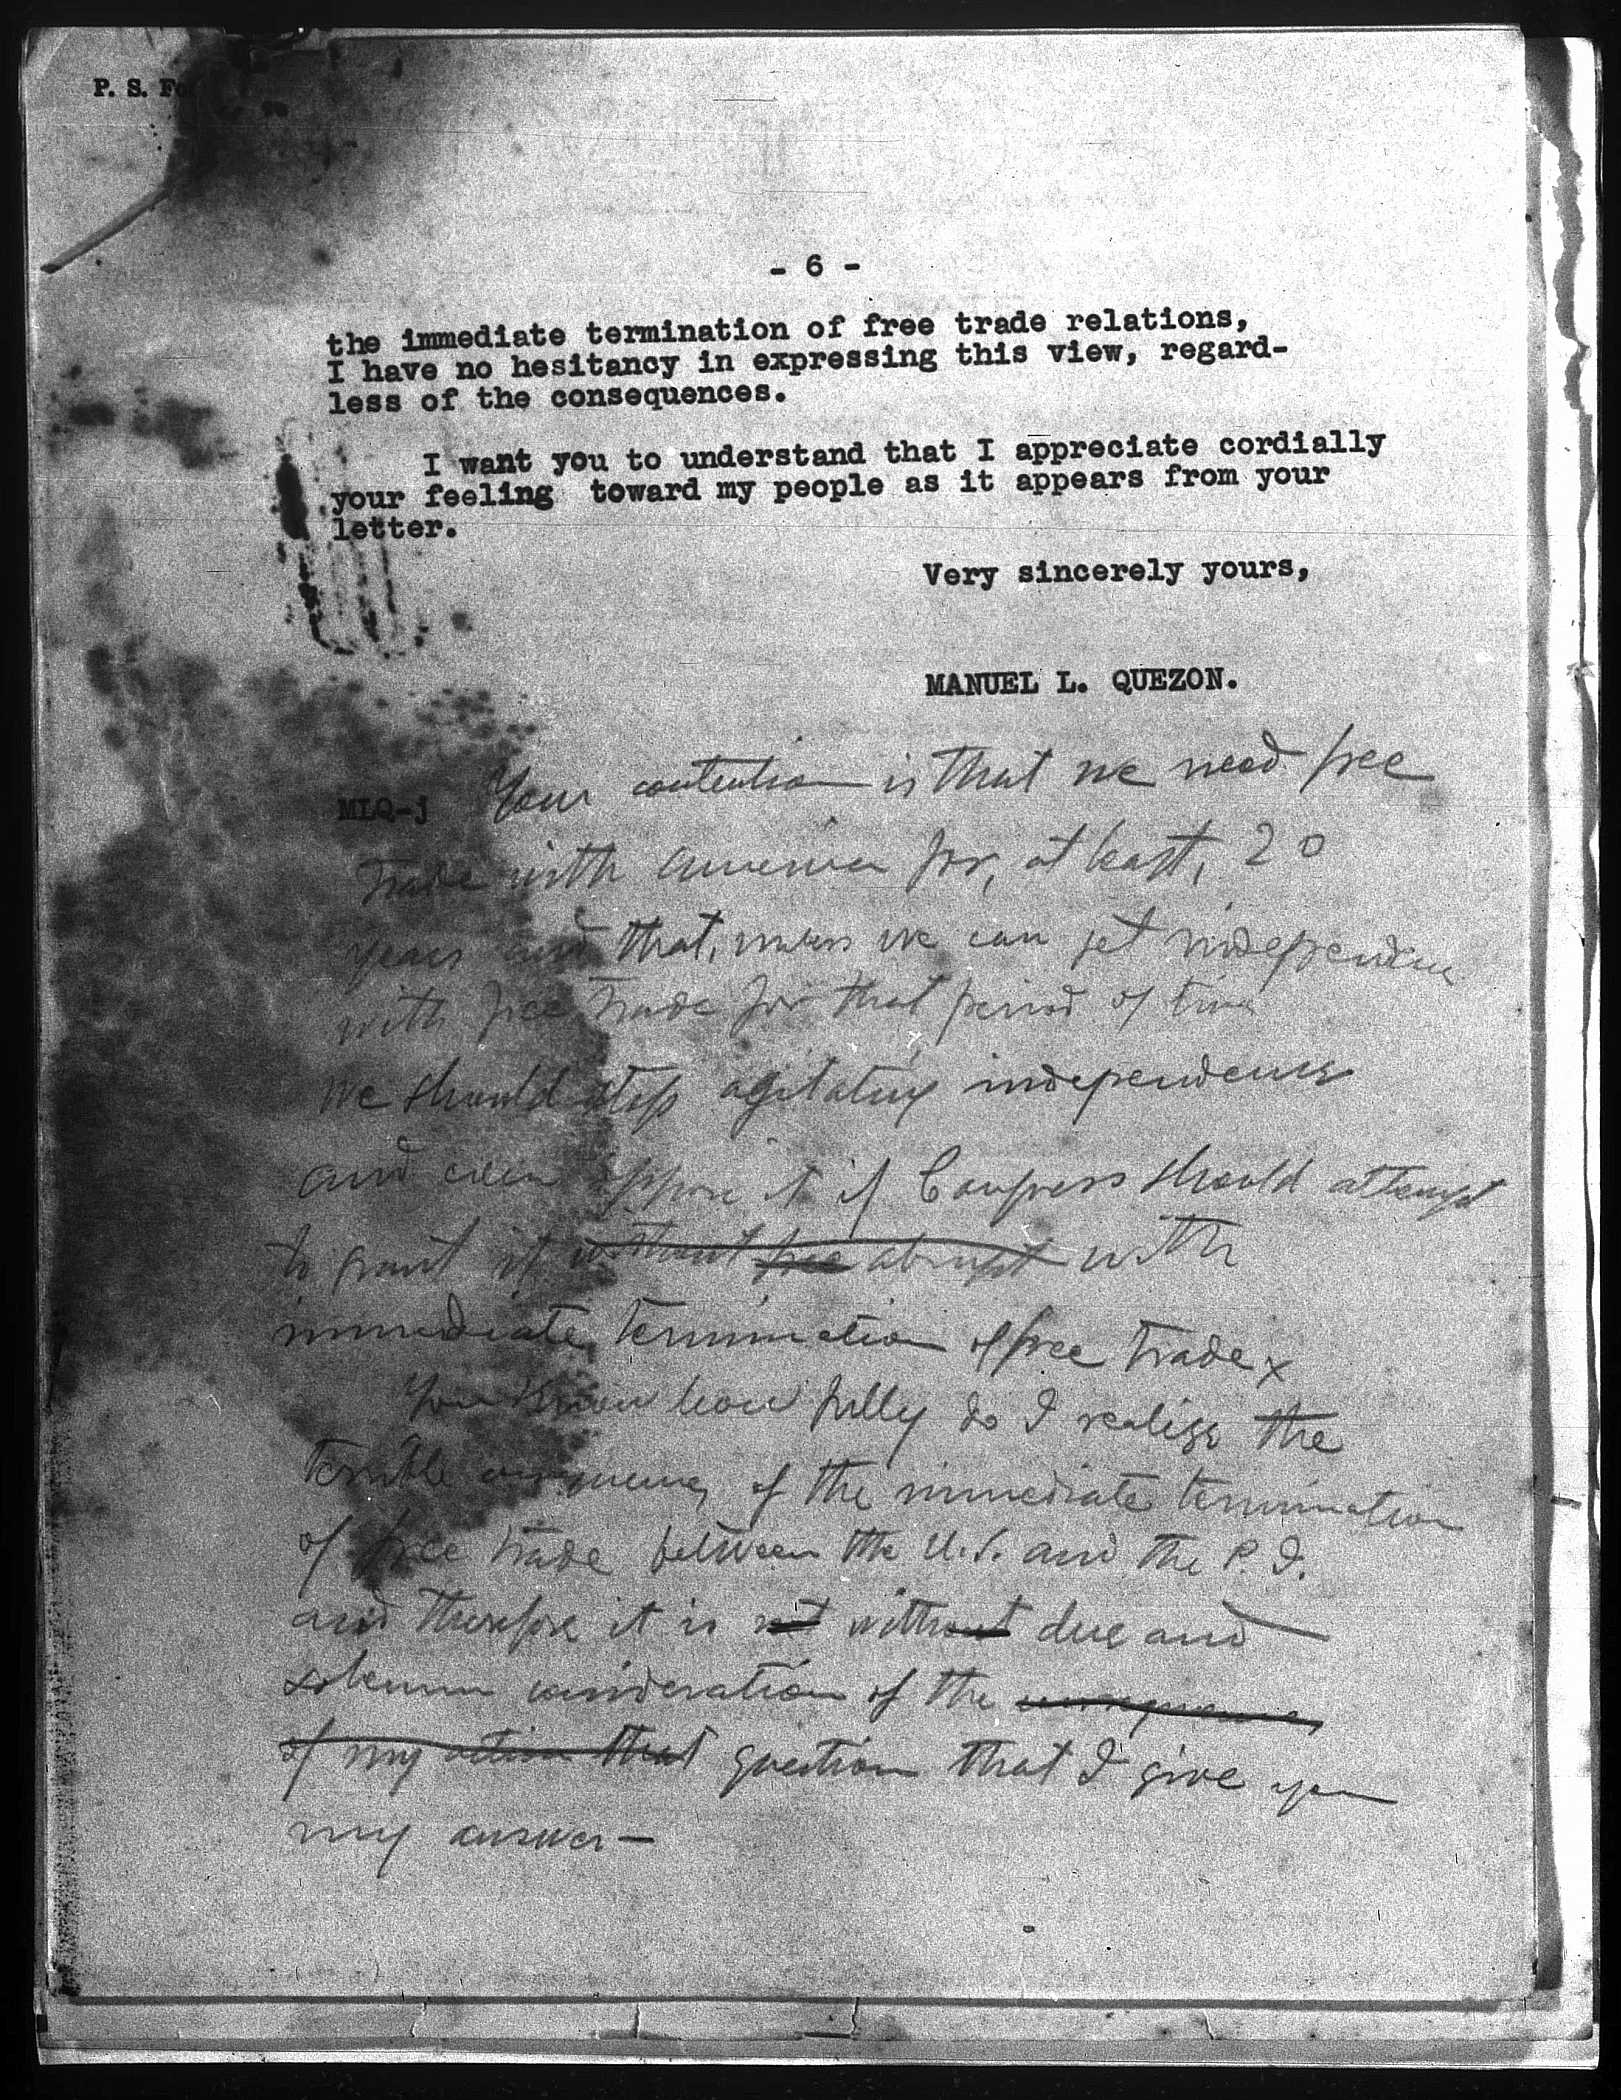 P. S. Fo
- 6 -
the immediate termination of free trade relations,
I have no hesitancy in expressing this view, regard-
less of the consequences.
I want you to understand that I appreciate cordially
your feeling toward my people as it appears from your
letter.
Very sincerely yours,
MANUEL L. QUEZON.
MLQ-j
Your contention is that we need free
trade with America for, at least, 20
years and that, unless we can get independence
with free trade for that period of time
we should stop agitating independence
and even oppose it if Congress should attempt
to grant it without free abrupt with
immediate termination of free trade x
You know how fully do I realize the
terrible consequences of the immediate termination
of free trade between the U.S. and the P.I.
and therefore it is not without due and
solemn consideration of the consequences
of my action that question that I give you
my answer —